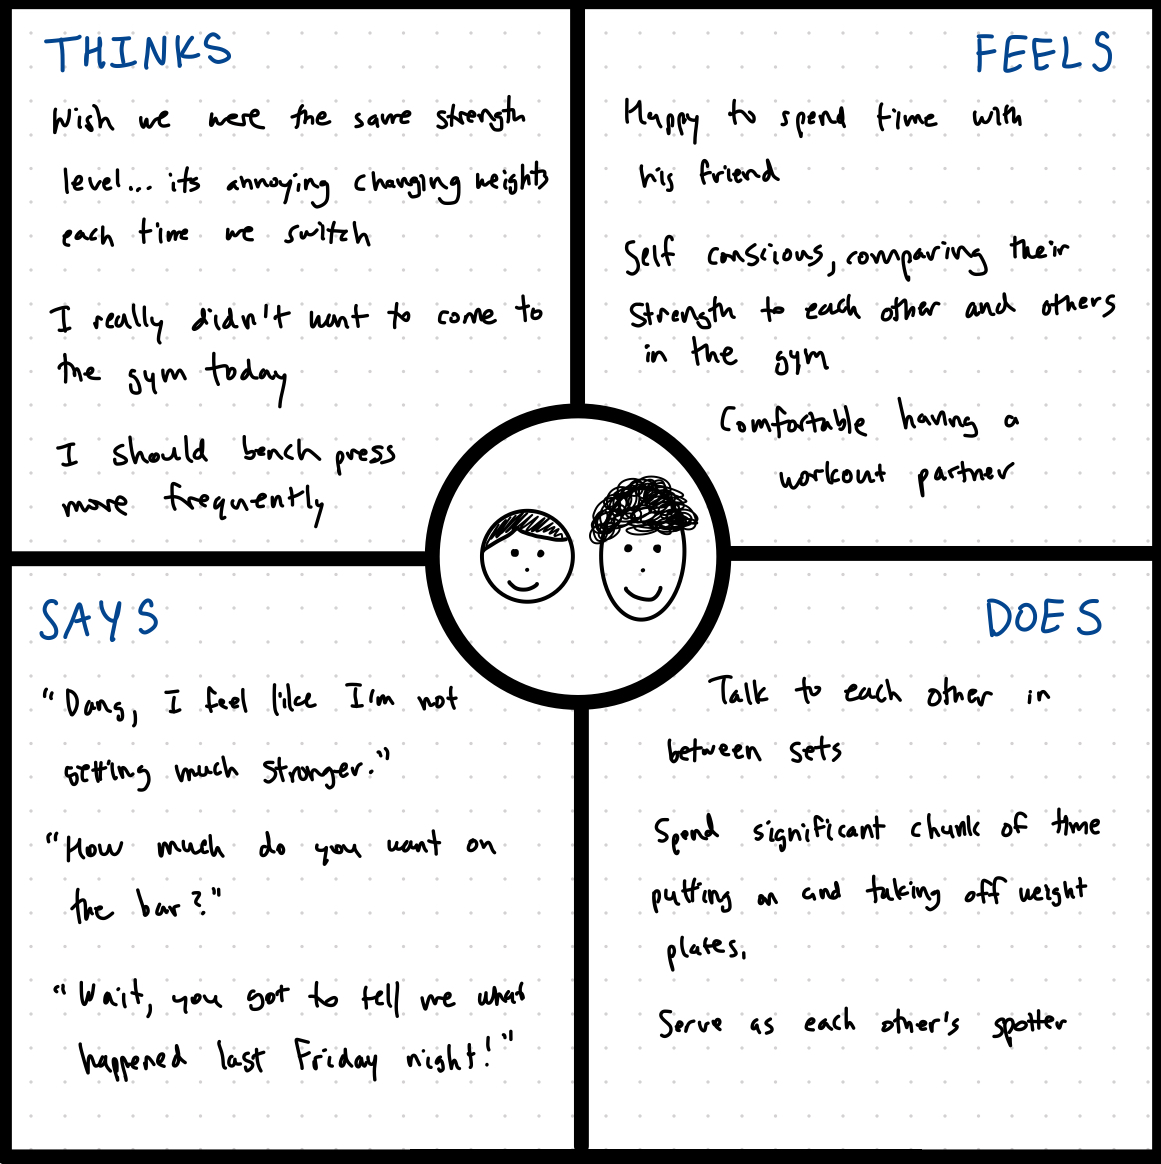 THINKS
Wish we were the same strength
level... its annoying changing weights
each time we switch
I really didn't want to come to
the gym today
I should bench press
more frequently
FEELS
Happy to spend time with
his friend
Self conscious, comparing their
strength to each other and others
in the gym
Comfortable having a
workout partner
SAYS
"Dang, I feel like I'm not
getting much stronger."
"How much do you want on
the bar?"
"Wait, you got to tell me what
happened last Friday night!"
DOES
Talk to each other in
between sets
Spend significant chunk of time
putting on and taking off weight
plates.
Serve as each other's spotter